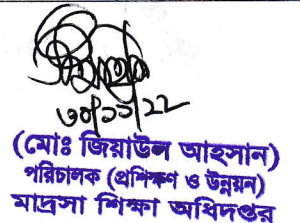 ৩০/১১/২২
(মোঃ জিয়াউল আহসান)
পরিচালক (প্রশিক্ষণ ও উন্নয়ন)
মাদ্রসা শিক্ষা অধিদপ্তর